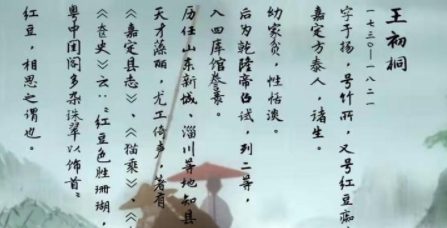 王初桐
一七三〇—一八二一
字于扬，号竹所，又号红豆痴
嘉定方泰人，诸生。
幼家贫，性恬淡。
后为乾隆帝召试，列二等，
入四库馆誊录。
历任山东新城、淄川等地知县
天才藻丽，尤工倚声，著有
《嘉定县志》、《猫乘》、《
《奁史》云：“红豆色胜珊瑚，
粤中闺阁多杂珠翠以饰首”
红豆，相思之谓也。